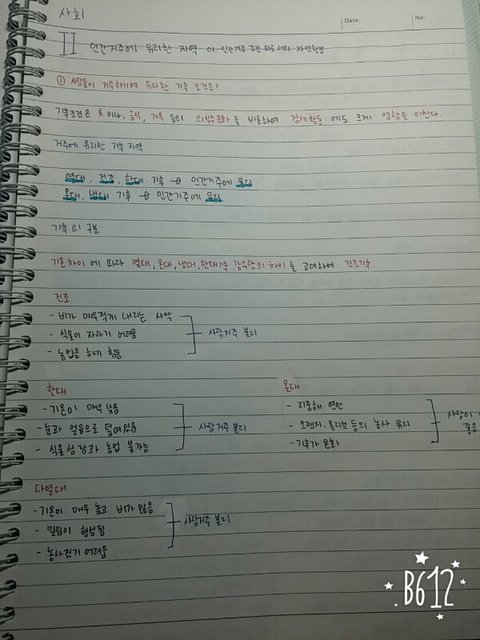 사회
Date.
No.
II 인간거주에 유리한 지역
① 사람들이 거주하기에 유리한 기후 조건은?
기후조건은 옷이나, 음식, 가옥 등의 의식주문화를 비롯하여 경제활동 에도 크게 영향을 미친다
거주에 유리한 기후 지역
열대, 건조, 한대 기후 → 인간거주에 불리
온대, 냉대 기후 → 인간거주에 유리
기후의 구분
기온차이에 따라 열대, 온대, 냉대, 한대기후 강수량의 차이를 고려하여 건조기후.
건조
- 비가 매우적게 내리는 사막
- 식물이 자라기 어려움
- 농업을 하기 힘듦
사람거주 불리
한대
- 기온이 매우 낮음
- 눈과 얼음으로 덮여있음
- 식물 성장과 농업 불가능
사람거주 불리
온대
- 지중해 연안
- 오렌지, 올리브 등의 농사 유리
- 기후가 온화
사람이
좋음
다열대
- 기온이 매우 높고 비가 많음
- 밀림이 형성됨
- 농사짓기 어려움
사람거주 불리
B612